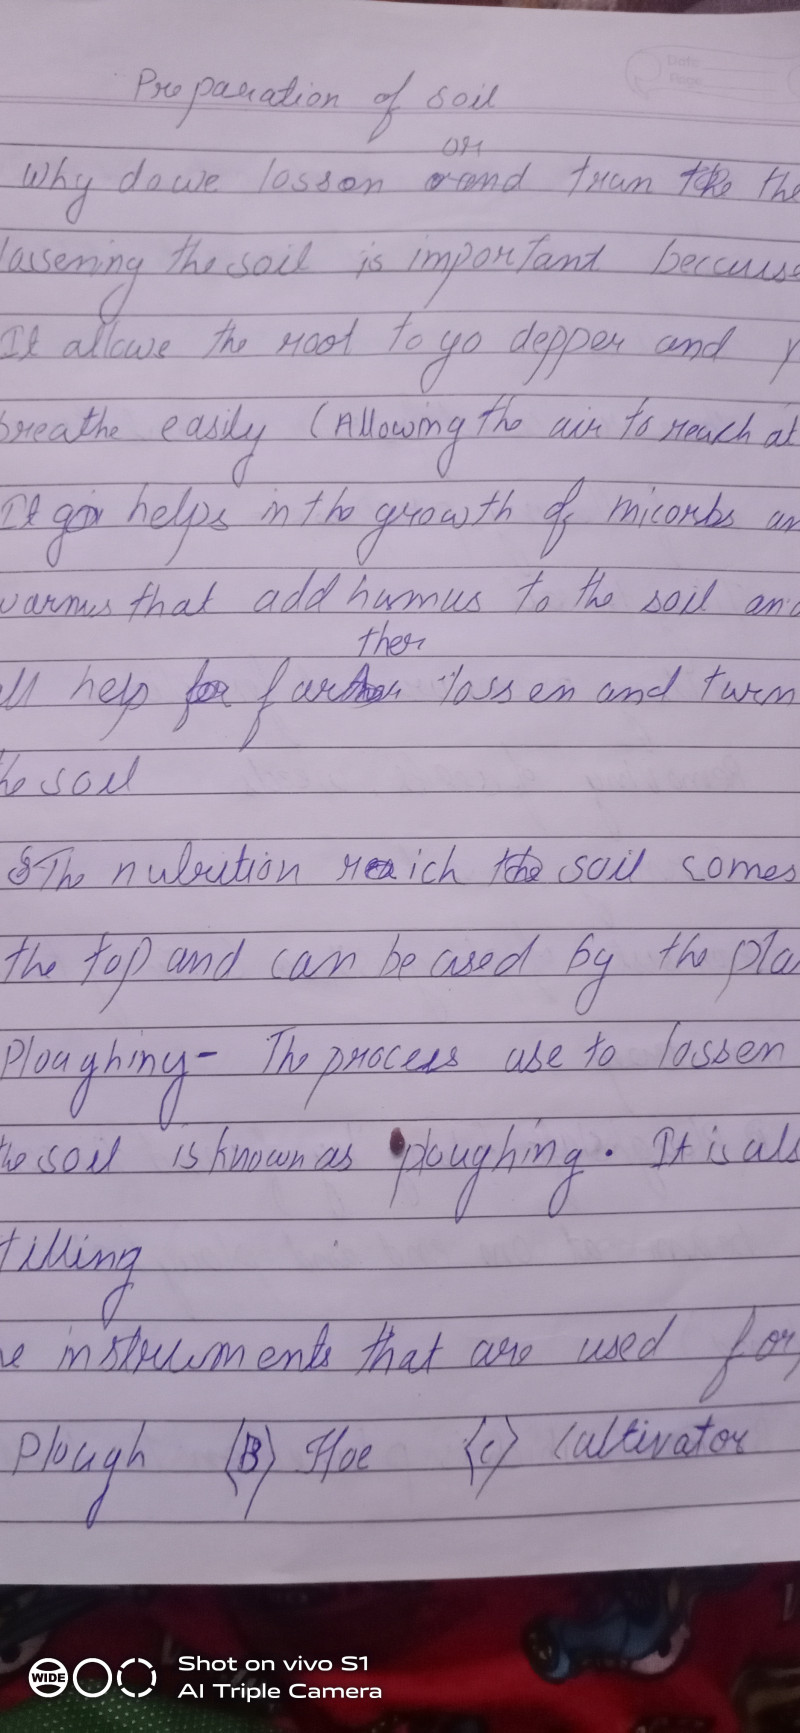 Preparation of soil
or
Why do we losson and trun the the
lassening the soil is important because
It allowe the root to go depper and
breathe easily (Allowing the air to reach at
It helps in the growth of micorbs an
warms that add humus to the soil and
ther
ll help far lossen and turn
he soil
The nutrition reich the soil comes
the top and can be used by the pla
Ploughing- The process use to lossen
the soil is known as ploughing. It is als
tilling
he instruments that are used for
Plough (B) Hoe (C) Cultivator
WIDE
Shot on vivo S1
AI Triple Camera